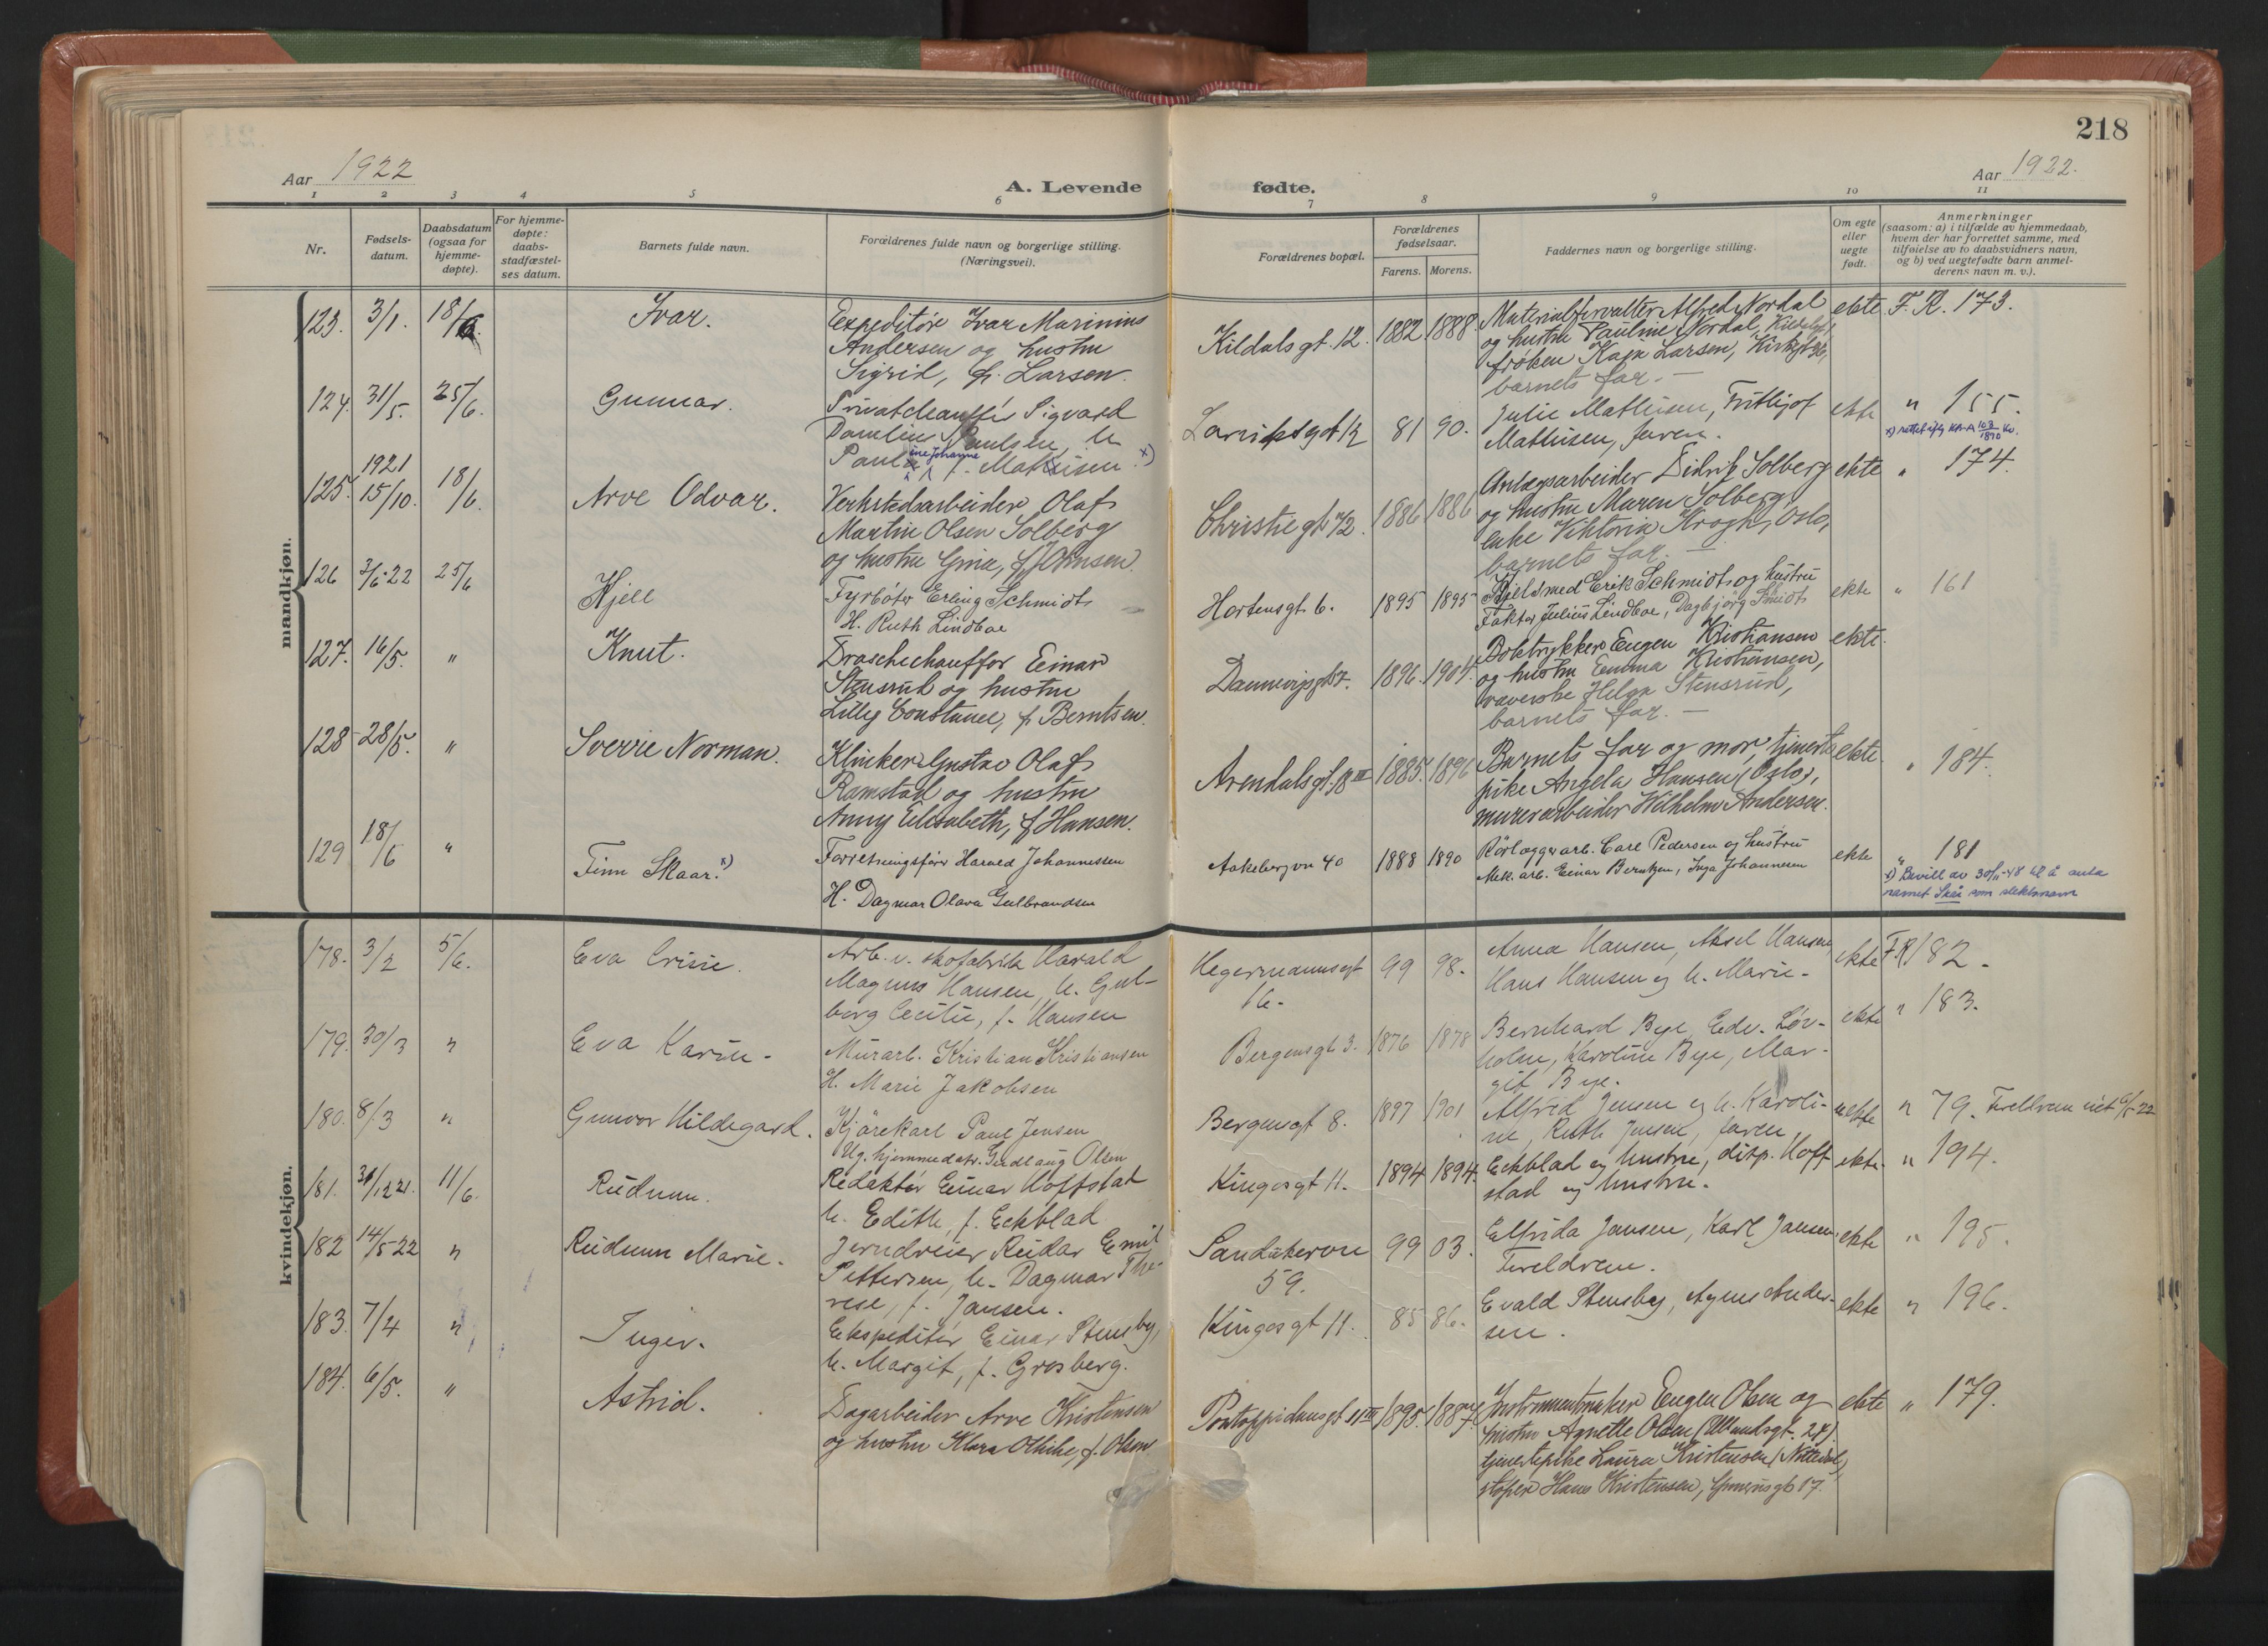 218
Aar 1922
A. Levende fødte.
Aar 1922.
1 2 3 4 5 6 7 8 9 10 11
Nr.
Fødsels-
datum.
Daabsdatum
(ogsaa for
hjemme-
døpte).
For hjemme-
døpte:
daabs-
stadfæstel-
ses datum.
Barnets fulde navn.
Forældrenes fulde navn og borgerlige stilling.
(Næringsvei).
Forældrenes bopæl.
Forældrenes
fødselsaar.
Farens. Morens.
Faddernes navn og borgerlige stilling.
Om egte
eller
uegte
født.
Anmerkninger
(saasom: a) i tilfælde av hjemmedaab,
hvem der har forrettet samme, med
tilføielse av to daabsvidners navn,
og b) ved uegtefødte barn anmel-
derens navn m. v.).
mandkjøn.
123. 3/1. 18/6. Ivar.
Expeditør Ivar Marinius
Andersen og hustru
Sigrid, f. Larsen.
Kildals gt. 12. 1882 1888
Materialforvalter Alfred Nordal
og hustru Pauline Nordal,
frøken Kaja Larsen,
barnets far. —
ekte F. R. 173.
124. 31/5. 25/6. Gunnar.
Privatchauffér Sigvard
Paulsen, h.
Paula ine Johanne f. Mathisen. x)
Larviksgt 12 81 90.
Julie Mathisen, Frithjof
Mathisen, faren.
ekte " 155.
x) rettet iflg KA-A 103/1890 Kv.
125. 1921 15/10. 18/6. Arve Odvar.
Verkstedsarbeider Olaf
Martin Olsen Solberg
og hustru Gina, f. Johnsen.
Christiegt 1886 1886
Anlægsarbeider Didrik Solberg
og hustru Maren Solberg,
enke Viktoria Krogh, Oslo,
barnets far. —
ekte " 174.
126 3/6-22 25/6 Kjell
Fyrbøter Erling Schmidt
H. Ruth Lindboe
Hortensgt 6. 1895 1895
Erik Schmidt og hustru
Faktor Julius Lindboe, Dagbjørg
ekte " 161
127. 16/5. " Knut.
Droschechauffør Einar
Stensrud og hustru
Lilly Constance, f. Berntsen.
Dannevigsgt 7. 1896. 1904.
Boktrykker Eugen Kristiansen
og hustru Emma Kristiansen,
væverske Helga Stensrud,
barnets far. —
ekte.
128 28/5. " Sverre Norman.
Klinker Gustav Olaf
Ramstad og hustru
Anny Elisabeth, f. Hansen.
Arendalsgt. 18 III 1885. 1896
Barnets far og mor, tjeneste-
pike Angela Hansen (Oslo),
murerarbeider Wilhelm Andersen.
ekte. " 184.
129 18/6 " Finn Skaar. x)
Forretningsfører Harald Johannessen
H. Dagmar Olava Gulbrandsen
Aakebergvn 40 1888 1890
Rørlæggerarb. Carl Pedersen og hustru
Mek. arb. Einar Berntzen, Inga Johannesen
ekte " 181
x) Bevill av 30/11-48 til å anta
navnet Skår som slektsnavn
kvindekjøn.
178. 3/2 5/6. Eva
Arb. v. skofabrik Harald
Magnus Hansen, h. Gul-
borg Cecilie, f. Hansen
Hegermannsgt
16. 99 98.
Anna Hansen, Aksel Hansen,
Hans Hansen og h. Marie.
ekte F.R. 182.
179. 30/3 " Eva Karin.
Murarb. Kristian Kristiansen
H. Marie Jakobsen
Bergensgt 3. 1876 1878
Bernhard Bye, Edv. Løv-
holm, Karoline Bye, Mar-
git Bye.
ekte " 183.
180. 8/3 " Gunvor Hildegard.
Kjørekarl Paul Jensen
Ug. hjemmedatr. Gudlaug Olsen
Bergensgt 8. 1897 1901
Alfred Jensen og h. Karoli-
ne, Ruth Jensen, faren.
uekte " 79. Foreldrene viet 6/5-22
181. 31/12 21. 11/6. Rudunn.
Redaktør Einar Hoffstad
h. Edith, f. Eckblad
Kingosgt 11. 1894 1894.
Eckblad og hustru, disp. Hoff-
stad og hustru.
ekte. " 194.
182 14/5-22 " Rudunn Marie.
Jerndreier Reidar Emil
Pettersen, h. Dagmar The-
rese, f. Jansen.
Sandakervn
59. 99 03.
Elfrida Jansen, Karl Jansen,
Foreldrene.
ekte " 195.
183. 7/4 " Inger.
Ekspeditør Einar Stensby,
h. Margit, f. Grosberg.
Kingosgt 11. 85 86.
Evald Stensby, Agnes Ander-
sen.
ekte " 196.
184. 6/5. " Astrid.
Dagarbeider Arve Kristensen
og hustru Klara Othilie, f. Olsen
Pontoppidansgt 11 III 1895. 1887.
Instrumentmaker Eugen Olsen og
hustru Agnette Olsen (Ullandsgt. 27).
tjenestepike Laura Kristensen (Nittedal),
støper Hans Kristensen,
ekte " 179.